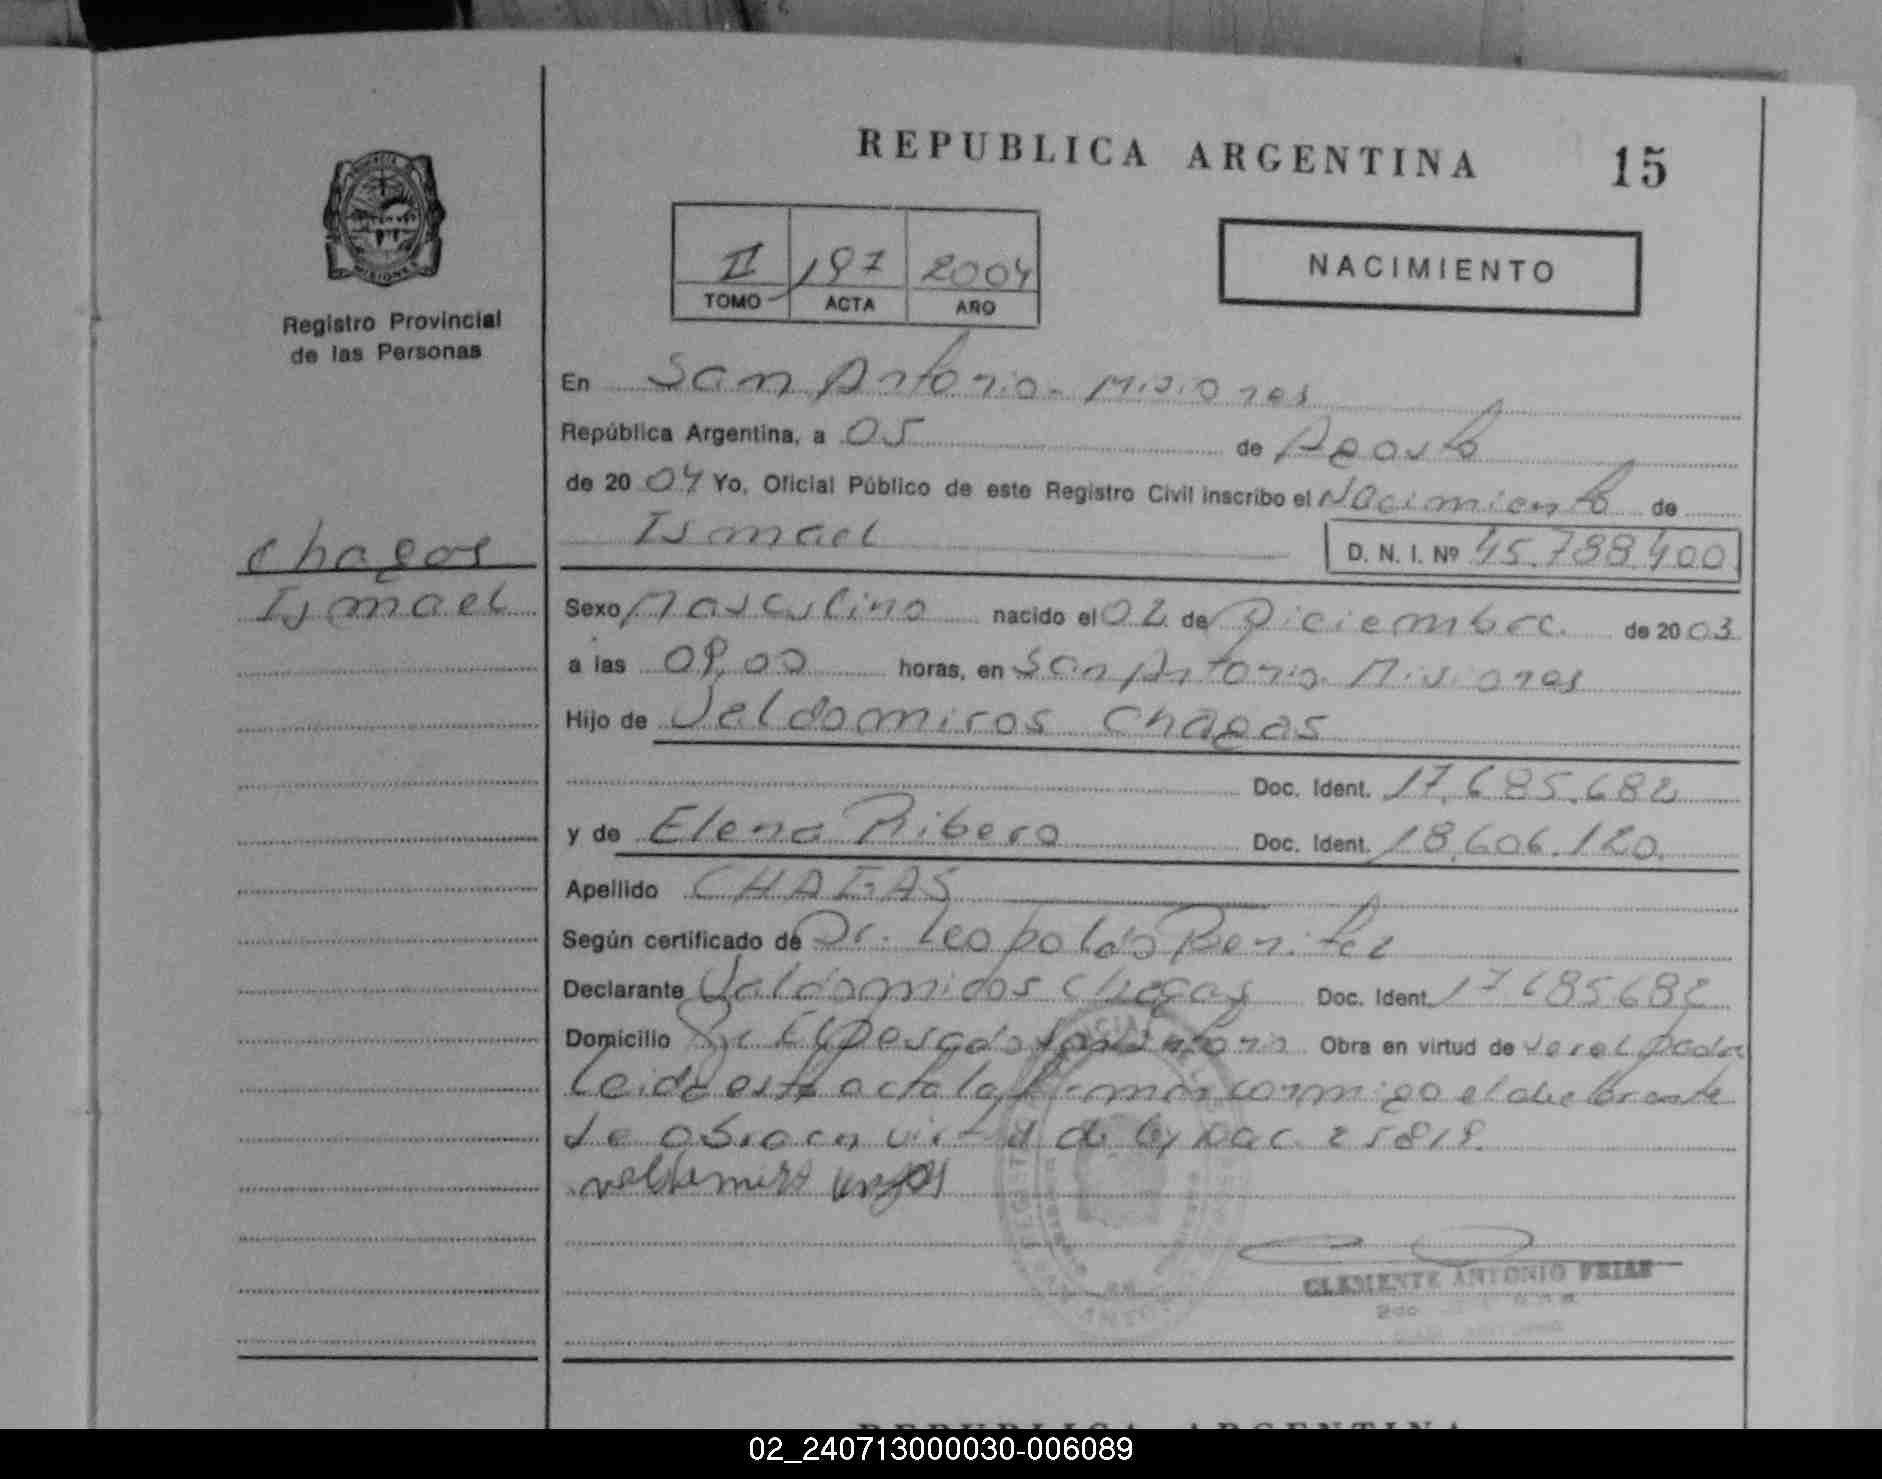 REPUBLICA ARGENTINA 15
PROVINCIA
MISIONES
Registro Provincial
de las Personas
II 197 2004
TOMO ACTA AÑO
NACIMIENTO
En San Antonio - Misiones
República Argentina, a 05 de Agosto
de 2004 Yo, Oficial Público de este Registro Civil inscribo el Nacimiento de
Ismael D. N. I. Nº 45.788.400
Chagas
Ismael
Sexo Masculino nacido el 02 de Diciembre de 2003
a las 09,00 horas, en San Antonio Misiones
Hijo de Valdomiros Chagas
Doc. Ident. 17.685.682
y de Elena Ribero Doc. Ident. 18.606.120.
Apellido CHAGAS
Según certificado de Dr. Leopoldo Benitez
Declarante Valdomiros Chagas Doc. Ident. 17685682
Domicilio El Pesado San Antonio Obra en virtud de ser el padre
Leida esta acta la firma conmigo el declarante
se obro en virtud de ley nac. 25819.
CLEMENTE ANTONIO FRIAS
REPUBLICA ARGENTINA
02_240713000030-006089